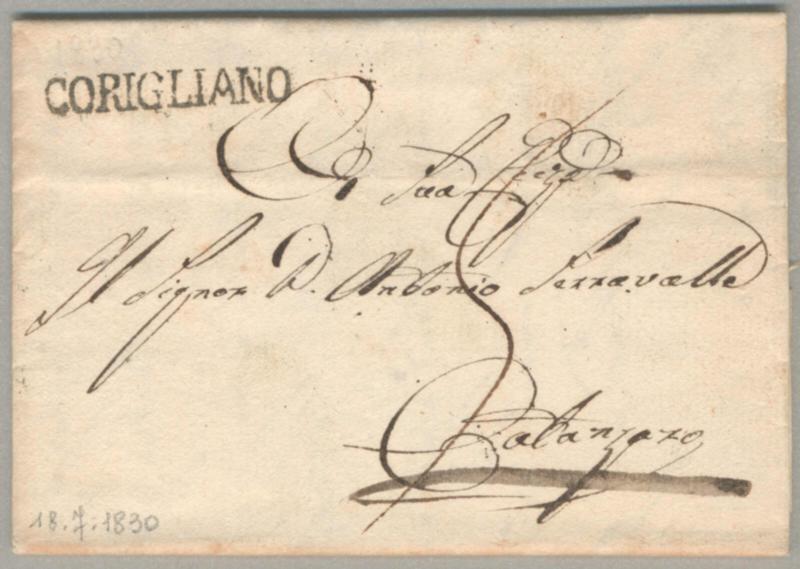 CORIGLIANO
A Sua
Il Signor D. Antonio Serravalle
Catanzaro
18.7.1830